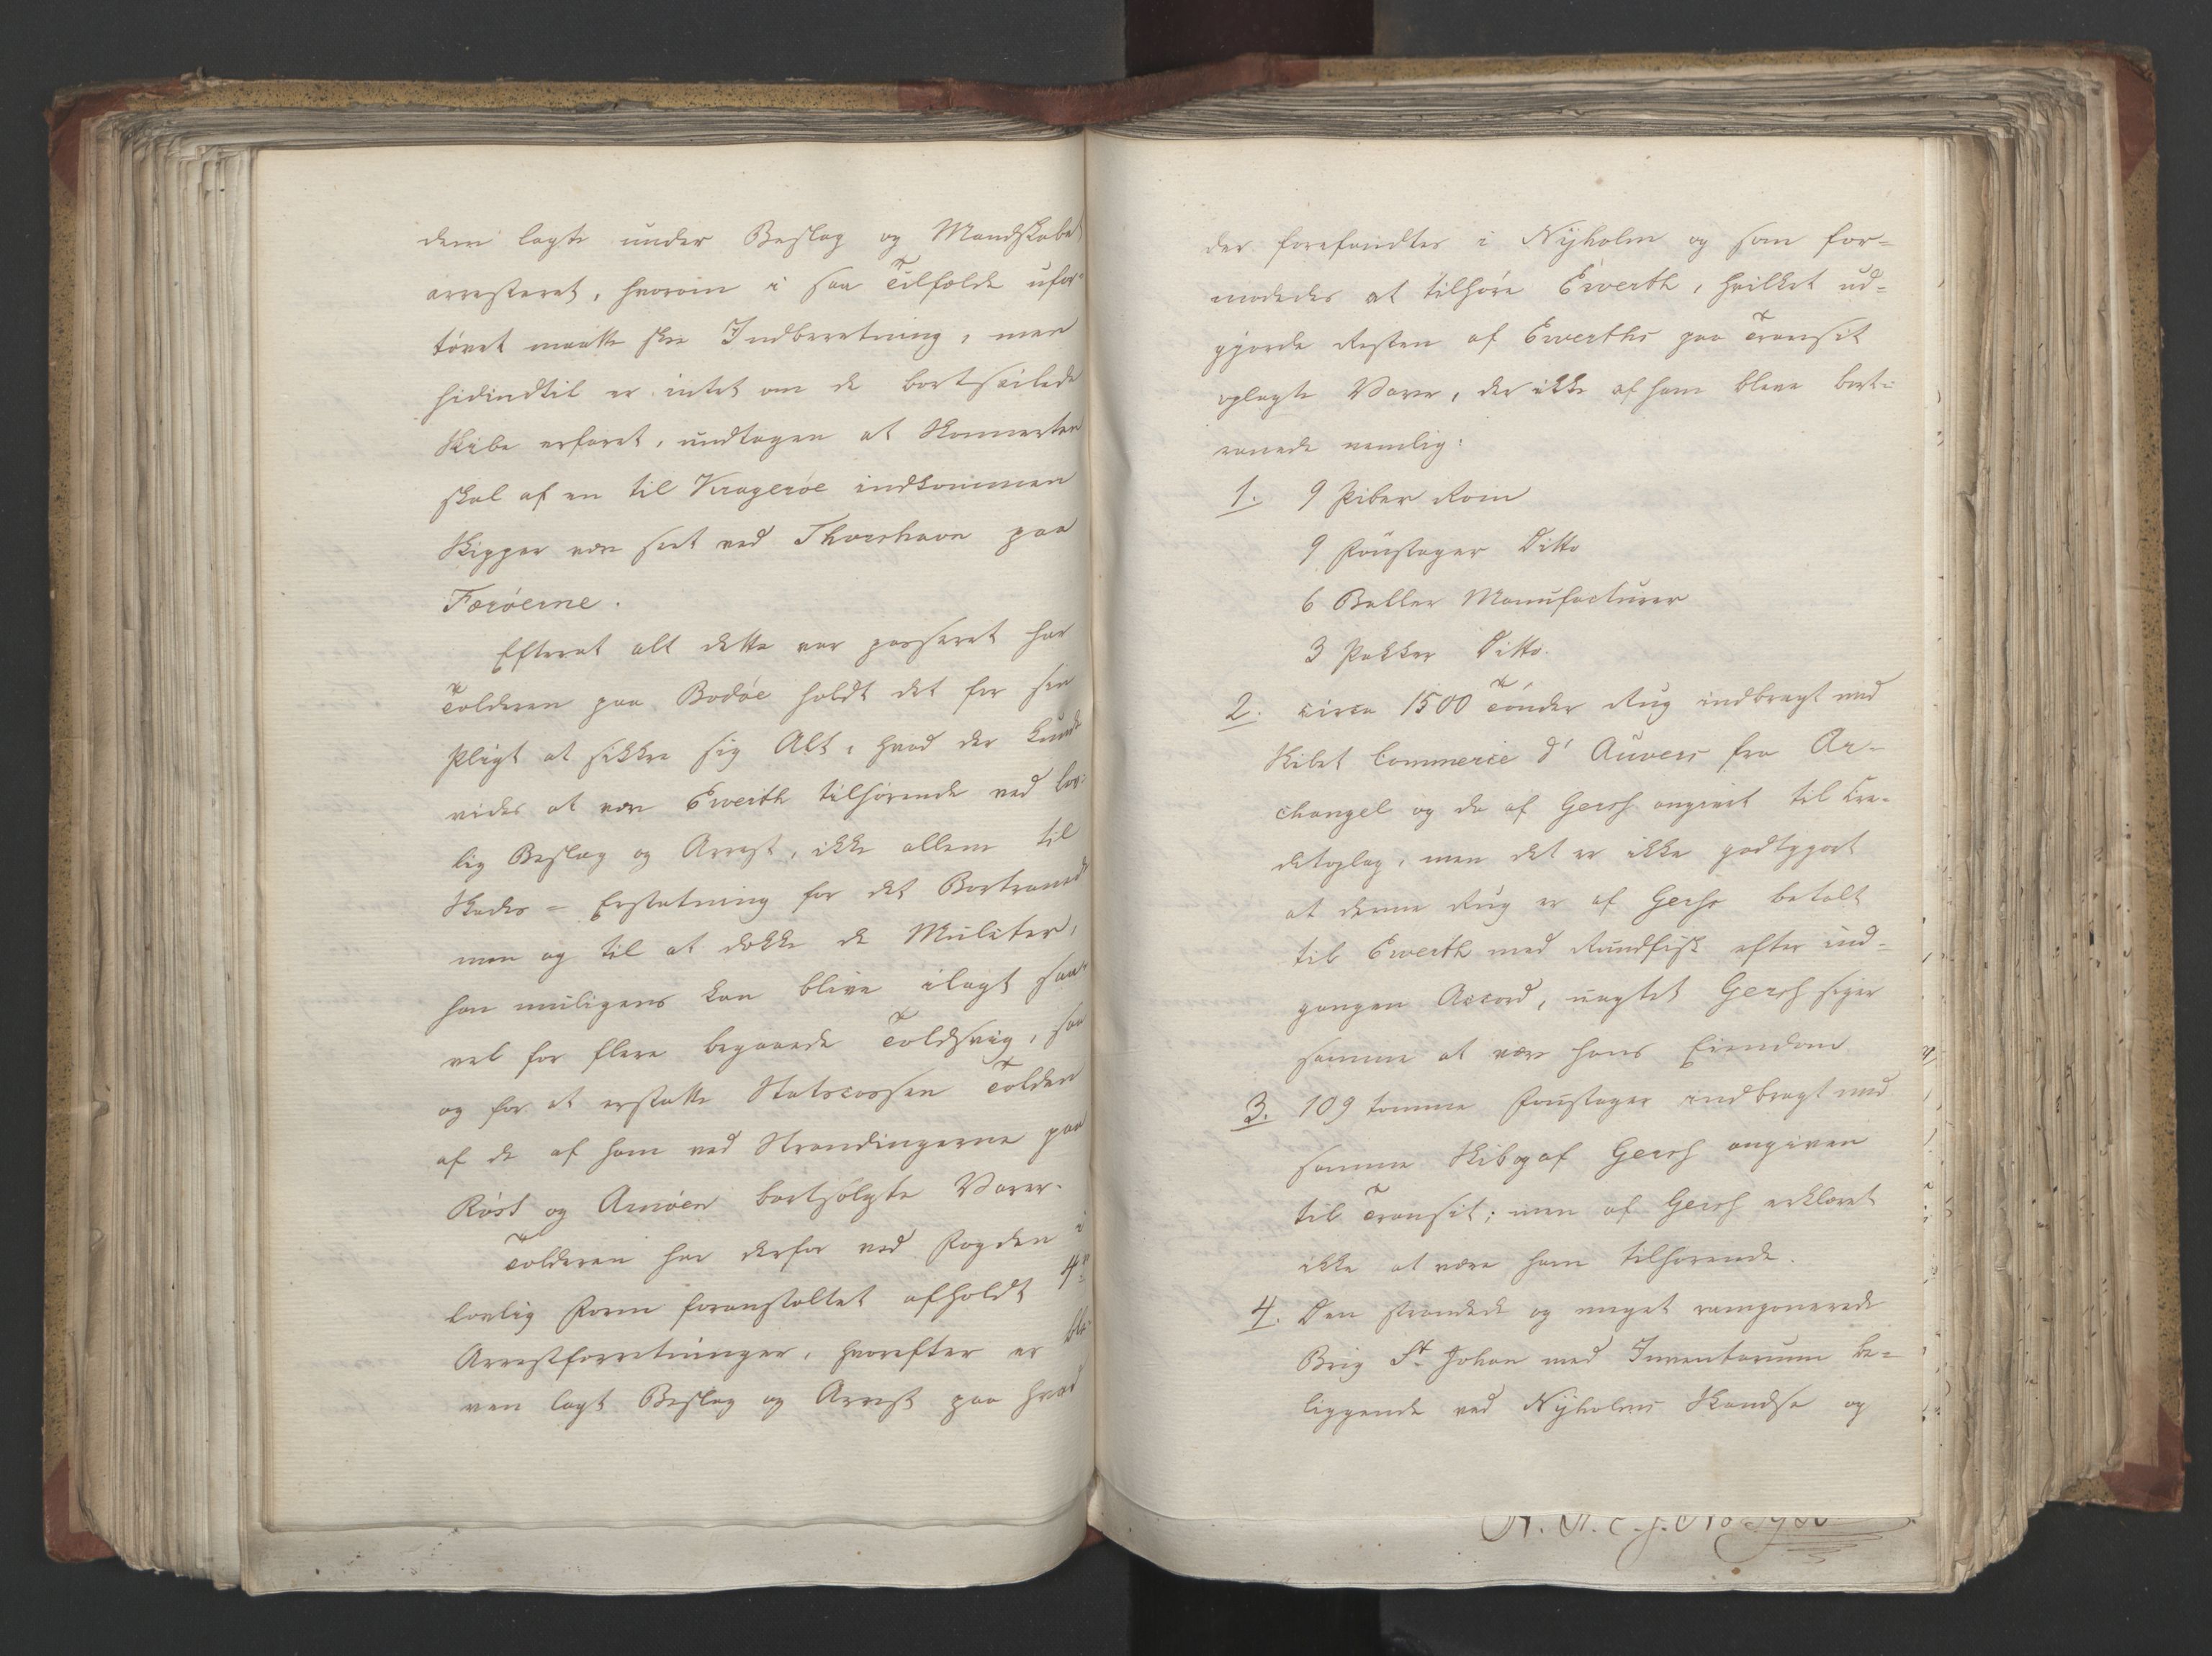 dem lagte under Beslag og Mandskabet
arresteret, hvorom i saa Tilfælde ufor-
tøvet maatte skee Indberetning, men
hidindtil er intet om de bortseilede
Skibe erfaret, undtagen at Konnerten
skal af en til Kragerøe indkommen
Skipper være seet ved Thorshavn paa
Færöerne.
Efterat alt dette var passeret har
Tolderen paa Bodöe holdt det for sin
Pligt at sikkre sig Alt, hvad der kunde
vides at være Ewerth tilhörende ved lov-
lig Beslag og Arrest, ikke allene til
Skades-Erstatning for det Bortranede
men og til at dække de Mulcter,
han muligens kan blive ilagt saa-
vel for flere begaaede Toldsvig, som
og for at erstatte Statscassen Tolden
af de af ham ved Strandingerne paa
Röst og Arnöen bortsolgte Varer.
Tolderen har derfor ved Fogden i
lovlig Form foranstaltet afholdt 4re
Arrestforretninger, hvorefter er ble-
ven lagt Beslag og Arrest paa hvad
der forefandtes i Nyholm og som for-
modedes at tilhøre Ewerth, hvilket ud-
gjorde Resten af Ewerths paa Transit
oplagte Varer, der ikke af ham bleve bort-
ranede nemlig:
1. 9 Piber Rom
9 Foustager Ditto
6 Baller Manufacturer
3 Pakker Ditto.
2. circa 1500 Tönder Rug indbragt med
Skibet Commerce d' Anvers fra Ar-
changel og da af Gersh angivet til Cre-
ditoplag, men det er ikke godtgjort
at denne Rug er af Gersh betalt
til Ewerth med Rundfisk efter ind-
gangen Accord, uagtet Gersh siger
samme at være hans Eiendom.
3. 109 tomme Foustager indbragt med
samme Skib og af Gersh angiven
til Transit; men af Gersh erklæret
ikke at være ham tilhørende.
4. Den strandede og meget ramponerede
Brig St. Johan med Inventarium be-
liggende ved Nyholms Skandse og